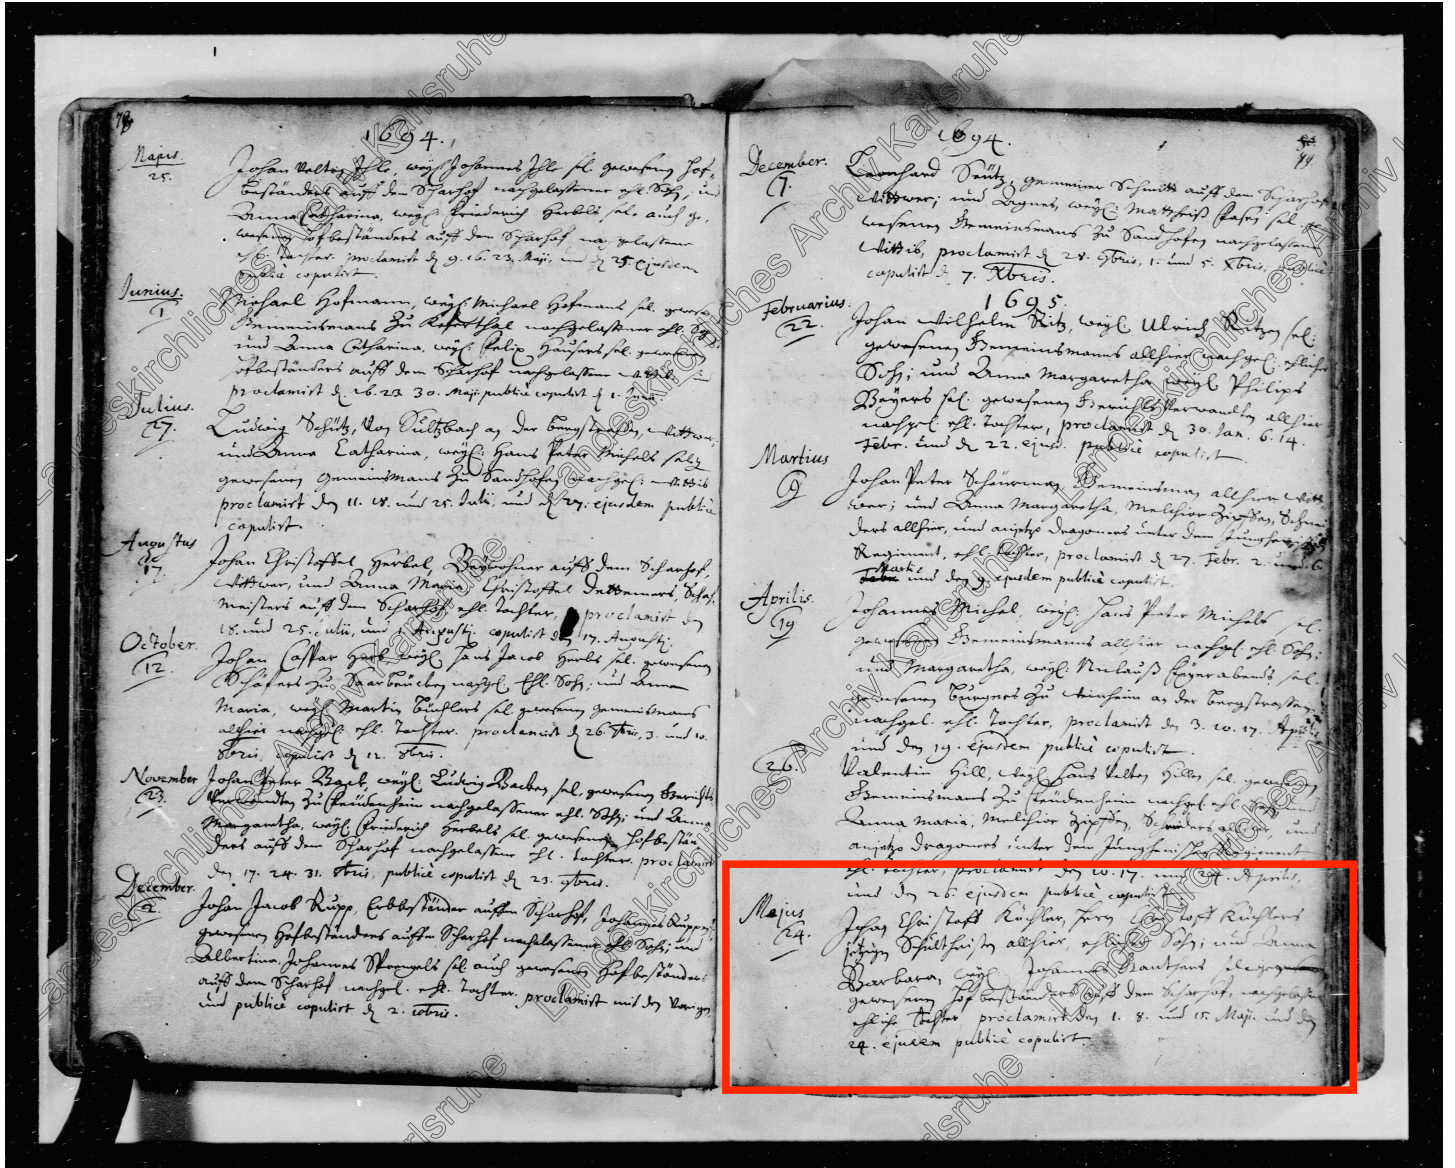 78
1694.
Majus
25.
Johan Velten Ihle, weyl. Johannes Ihle sel. gewesenen Hof-
beständers auff dem Scharhof nachgelassener ehl. Sohn, und
Anna Catharina, weyl. Friederich Herbels sel. auch ge-
wesenen Hofbeständers auff dem Scharhof, nachgelassene
ehl. Tochter. proclamirt d. 9. 16. 23. Maji, und d. 25. ejusdem
publicè copulirt.
Junius.
1
Michael Hofmann, weyl. Michael Hofmans sel. gewesenen
Gemeinsmans zu Keferthal nachgelassener ehl. Sohn
und Anna Catharina, weyl. Felix Hausers sel. gewesenen
Hofbeständers auff dem Scharhof nachgelassene
proclamirt d. 16. 23. 30. Maji publicè copulirt d. 1. Junij.
Julius.
27.
Ludwig Schütz, von Sultzbach an der Bergstrassen, Wittwer,
und Anna Catharina, weyl. Hans Peter Michels sel.
gewesenen Gemeinsmans zu Sandhofen nachgel. Wittib
proclamirt den 11. 18. und 25. Julii, und d. 27. ejusdem publicè
copulirt.
Augustus
17.
Johan Christoffel Herbel, Beywohner auff dem Scharhof,
Wittwer, und Anna Maria, Christoffel Dettemers, Schaf-
meisters auff dem Scharhof ehl. Tochter, proclamirt den
18. und 25. Julii, und 1. Augusti, copulirt den 17. Augusti.
October.
12.
Johan Caspar Herb, weyl. Hans Jacob Herbs sel. gewesenen
Schäfers zu Saarbrücken nachgel. Ehl. Sohn, und Anna
Maria, weyl. Martin Büchlers sel. gewesenen Gemeinsmans
allhier nachgel. ehl. Tochter. proclamirt d. 26. 7bris, 3. und 10.
8bris, copulirt d. 12. 8bris.
November
23.
Johan Peter Back, weyl. Ludwig Backen sel. gewesenen Gerichts-
verwandten zu Feudenheim nachgelassener ehl. Sohn, und Anna
Margaretha, weyl. Friderich Herbels sel. gewesenen Hofbestän-
ders auff dem Scharhof nachgelassene ehl. Tochter. proclamirt
den 17. 24. 31. 8bris, publicè copulirt d. 23. 9bris.
December.
2.
Johan Jacob Rupp, Erbbeständer auffm Scharhof, Johannes Ruppen
gewesenen Hofbeständers auffm Scharhof nachgelassener ehl. Sohn, und
Albertina, Johannes Sprengels sel. auch gewesenen Hofbeständers
auff dem Scharhof nachgel. ehl. Tochter. proclamirt mit den Vorigen
und publicè copulirt d. 2. xbris.
79.
1694.
December.
7.
Leonhard Seütz, gemeiner Schmitt auff dem Scharhof
Wittwer, und Agnes, weyl. Mattheiß sel. ge-
wesenen Gemeinsmans zu Sandhofen nachgelassene
Wittib, proclamirt d. 28. 9bris, 1. und 5. Xbris, publicè
copulirt d. 7. Xbris.
1695.
Februarius.
22.
Johan Wilhelm Ritz, weyl. Ulrich Ritzen sel.
gewesenen Gemeinsmanns allhier nachgel. ehlicher
Sohn, und Anna Margaretha, weyl. Philips
Beyers sel. gewesenen Gerichtsverwandten allhier
nachgel. ehl. Tochter, proclamirt d. 30. Jan. 6. 14.
Febr. und d. 22. ejusd. publicè copulirt.
Martius
9
Johan Peter Scheürman, Gemeinsman allhier Witt-
wer, und Anna Margaretha, Melchior Zipffen, Schnei-
ders allhier, und anjetzo dragoners unter dem
Regiment, ehl. Tochter, proclamirt d. 27. Febr. 2. und 6
Martii
Febr. und den 9. ejusdem publicè copulirt.
Aprilis.
19
Johannes Michel, weyl. Hans Peter Michels sel.
gewesenen Gemeinsmanns allhier nachgel. ehl. Sohn,
und Margaretha, weyl. Niclauß Feyerabends sel.
gewesenen Burgers zu Weinheim an der Bergstrassen,
nachgel. ehl. Tochter, proclamirt den 3. 10. 17. Aprilis
und den 19. ejusdem publicè copulirt.
26.
Valentin Hill, weyl. Hans Velten Hillen sel. gewesenen
Gemeinsmans zu Feudenheim nachgel. ehl. Sohn und
Anna Maria, Melchior Zipffen, Schneiders allhier, und
anjetzo dragoners unter dem Regiment
ehl. Tochter, proclamirt den 10. 17. und 24. Aprilis,
und den 26. ejusdem publicè copulirt.
Majus
24.
Johan Christoff Küchler, Herrn Christoff Küchlers
jetzigen Schultheisen allhier, ehlicher Sohn, und Anna
Barbara, weyl. Johannes sel.
gewesenen Hofbeständers auff dem Scharhof, nachgelassene
ehliche Tochter proclamirt den 1. 8. und 15. Maji, und den
24. ejusdem publicè copulirt.
Landeskirchliches Archiv Karlsruhe